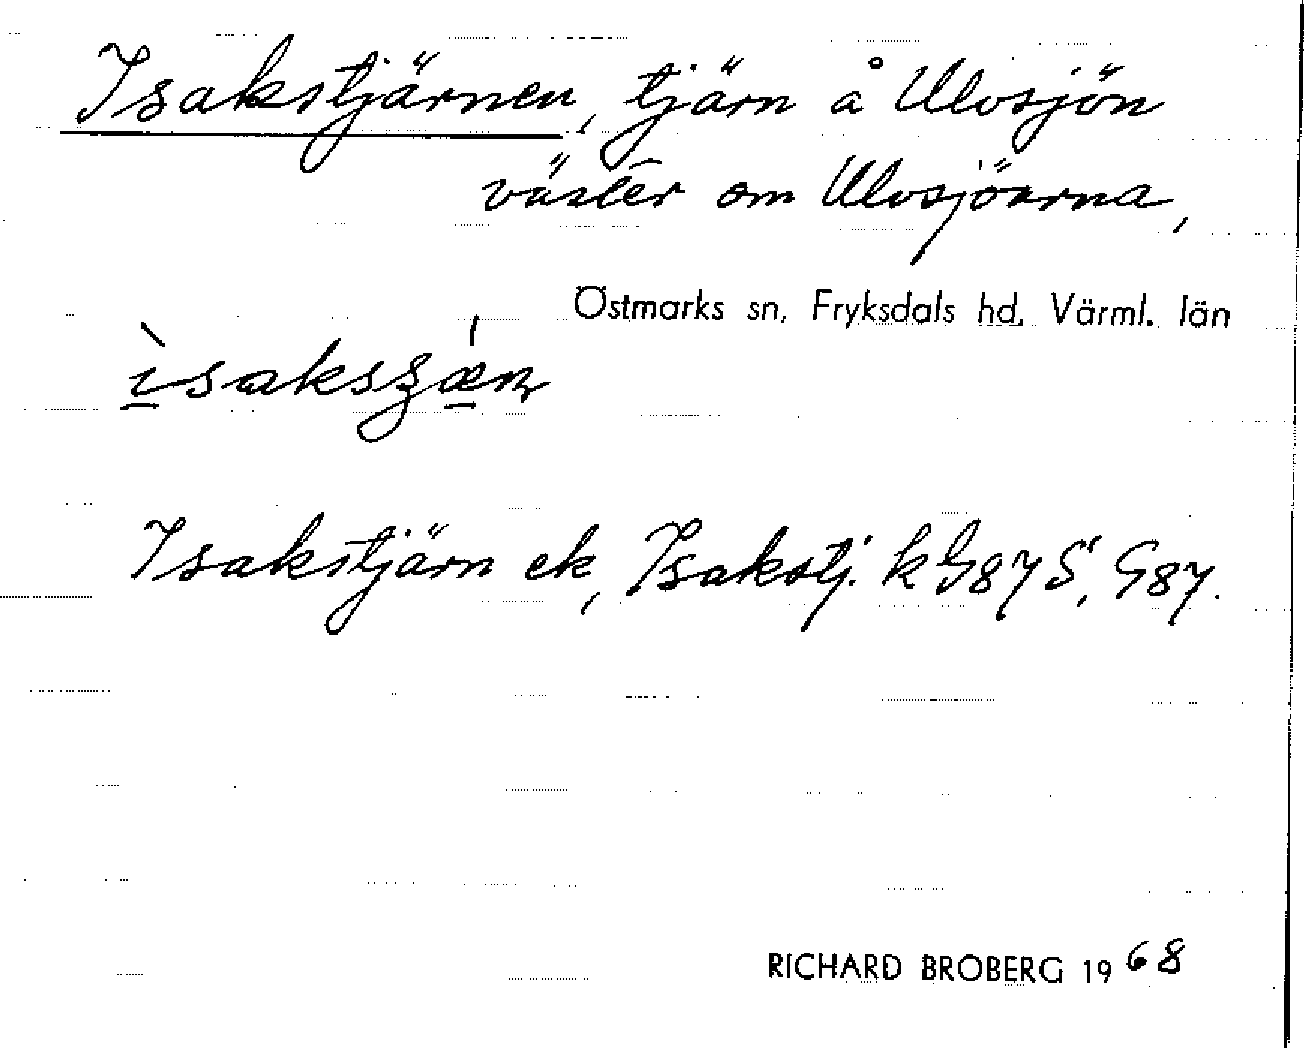 Isakstjärnen, tjärn å Ulvsjön
väster om Ulvsjöarna,
Östmarks sn, Fryksdals hd, Värml. län
Isakstjärn ek, Isakstj. k G87S, G87.
RICHARD BROBERG 1968